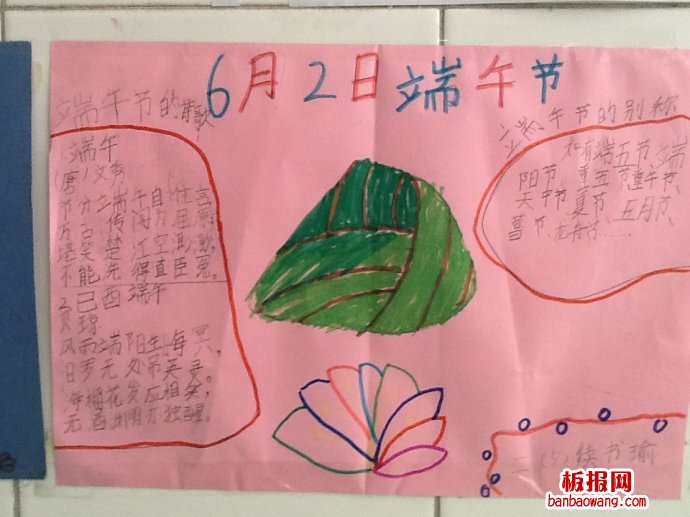 6月2日端午节
端午节的诗歌
端午
(唐)文秀
节分端午自谁言
万古传闻为屈原,
堪笑楚江空渺渺,
不能洗得直臣冤。
2 己酉端午
贝琼
风雨端阳生晦冥,
汨罗无处吊英灵。
海榴花发应相笑,
无酒渊明亦独醒。
端午节的别称
端五节、端
阳节、重五节、重午节、
天中节、夏节、五月节、
菖节、
二(5)
板报网
banbaowang.com